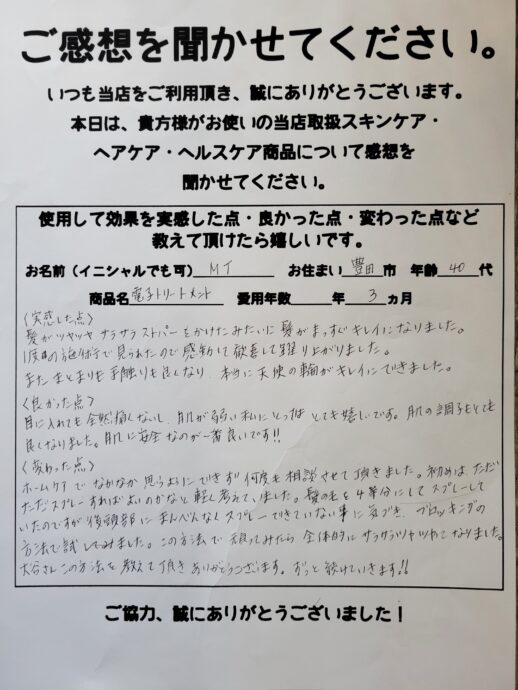 ご感想を聞かせてください。
いつも当店をご利用頂き、誠にありがとうございます。
本日は、貴方様がお使いの当店取扱スキンケア・
ヘアケア・ヘルスケア商品について感想を
聞かせてください。
使用して効果を実感した点・良かった点・変わった点など
教えて頂けたら嬉しいです。
お名前（イニシャルでも可） MT お住まい 豊田 市 年齢 40 代
商品名 電子トリートメント 愛用年数 年 3 ヵ月
〈実感した点〉
髪がツヤツヤ サラサラ ストパーをかけたみたいに髪がまっすぐキレイになりました。
1度目の施術で見られたので感動して歓喜して踊り上がりました。
また まとまりも手触りも良くなり、本当に天使の輪がキレイにできました。
〈良かった点〉
目に入れても全然痛くないし、肌が弱い私にとっては とても嬉しいです。肌の調子もとても
良くなりました。肌に安全なのが一番良いです!!
〈変わった点〉
ホームケアでなかなか思うようにできず何度も相談させて頂きました。初めは、ただ
ただスプレーすればよいのかなと軽く考えていました。髪の毛を4等分にしてスプレーして
いたのですが後頭部にまんべんなくスプレーできていない事に気づき、ブロッキングの
方法で試してみました。この方法で頑張ってみたら全体的にサラサラツヤツヤになりました。
大谷さんこの方法を教えて頂きありがとうございます。ずっと続けていきます!!
ご協力、誠にありがとうございました！